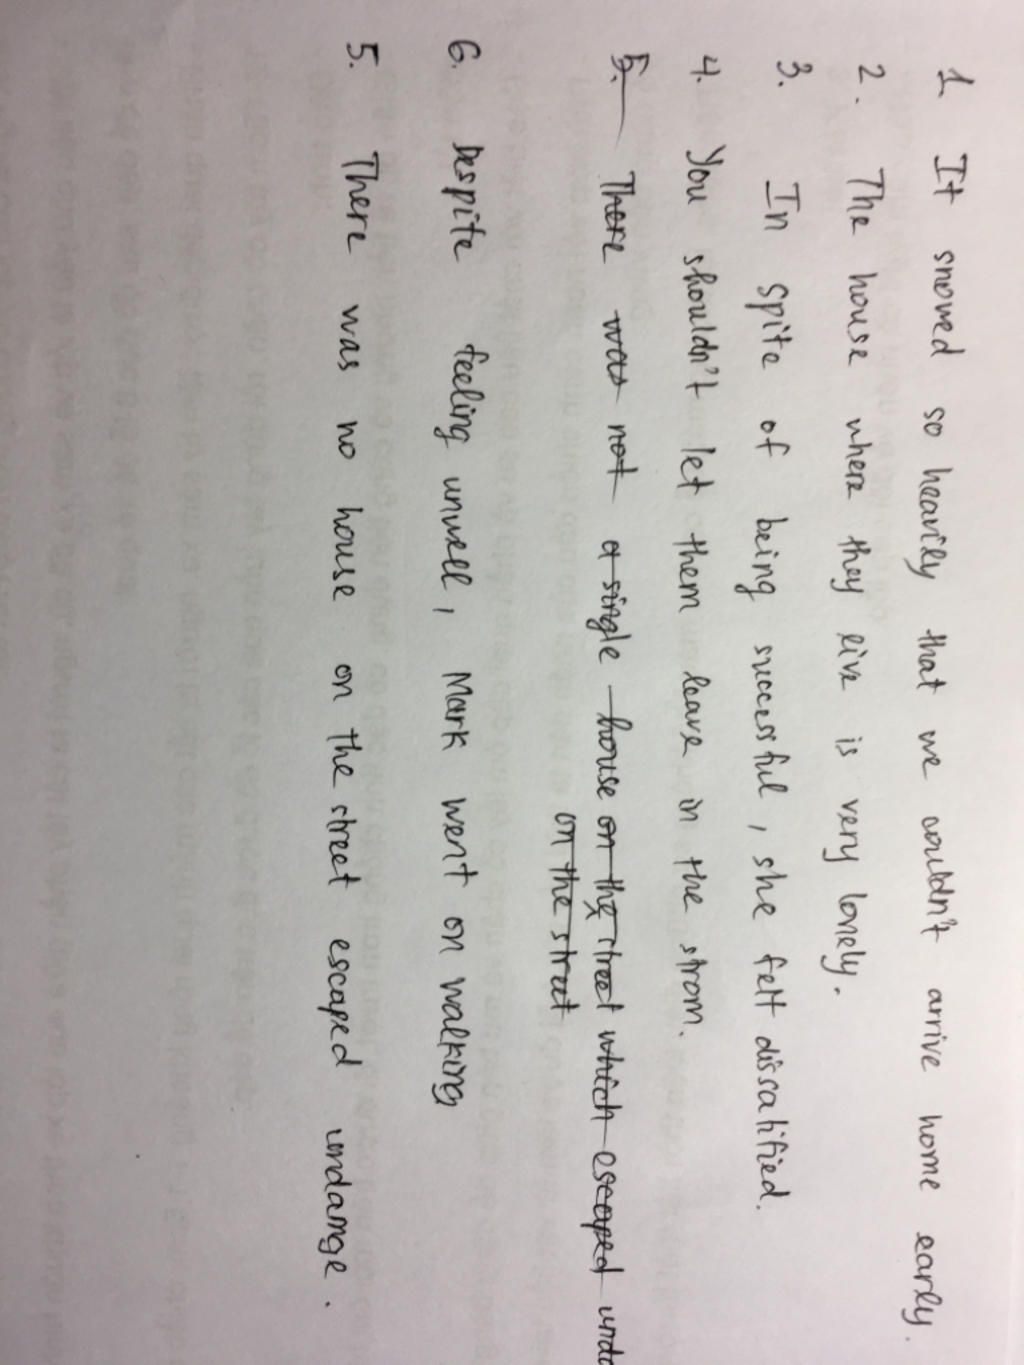 1 It snowed so heavily that we couldn't arrive home early.
2. The house where they live is very lonely.
3. In spite of being successful, she felt dissatified.
4. You shouldn't let them leave in the strom.
5. There was not a single house on the street which escaped unda
on the street
6. Despite feeling unwell, Mark went on walking
5. There was no house on the street escaped undamge.